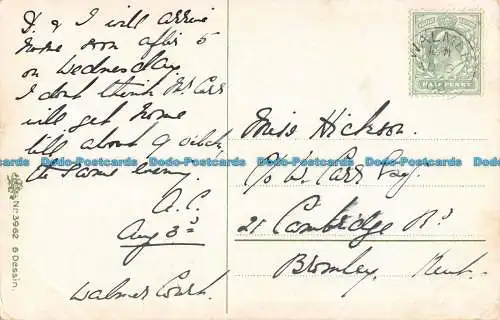 D. & I will arrive
home soon after 5
on Wednesday
I dont think Mr Carr
will get home
till about 9 o'clock
the same eveng.
A.C.
Aug 3rd
Walmer Court.
Nr. 3962 6 Dessin.
HALF PENNY
WALMER
Miss Hickson.
c/o W. Carr Esq.
21 Cambridge Rd
Bromley, Kent.
Dodo-Postcards Dodo-Postcards Dodo-Postcards Dodo-Postcards Dodo-Postcards